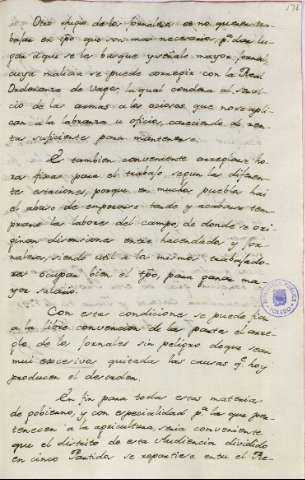 Otro vicio de los jornaleros es no querer tra-
bajar en tpo que son mas necesarios pa dar lu-
gar a que se les busque y señale mayor jornal
cuya malicia se puede corregir con la Real
Ordenanza de vagos, la qual condena al servi-
cio de las armas a los ociosos que no se apli-
can a la labranza u oficios, careciendo de ren-
tas suficientes para mantenerse.
Es tambien conveniente arreglar ho-
ra fixas para el trabajo segun las diferen-
tes estaciones, porque en muchos pueblos hai
el abuso de empezarse tarde y acabarse tem-
prano las labores del campo, de donde se ori-
ginan disensiones entre hacendados y jor-
naleros, siendo util a los mismos trabajado-
res ocupar bien el tpo, para ganar ma-
yor salario.
Con estas condiciones se puede fiar
a la libre convencion de las partes el arre-
glo de los jornales sin peligro de que sean
mui excesivos quitadas las causas qe hoy
producen el desorden.
En fin para todas estas materias
de gobierno, y con especialidad pa las que per-
tenecen a la agricultura, seria conveniente
que el distrito de esta Audiencia dividido
en cinco Partidos se repartiese entre el Re-